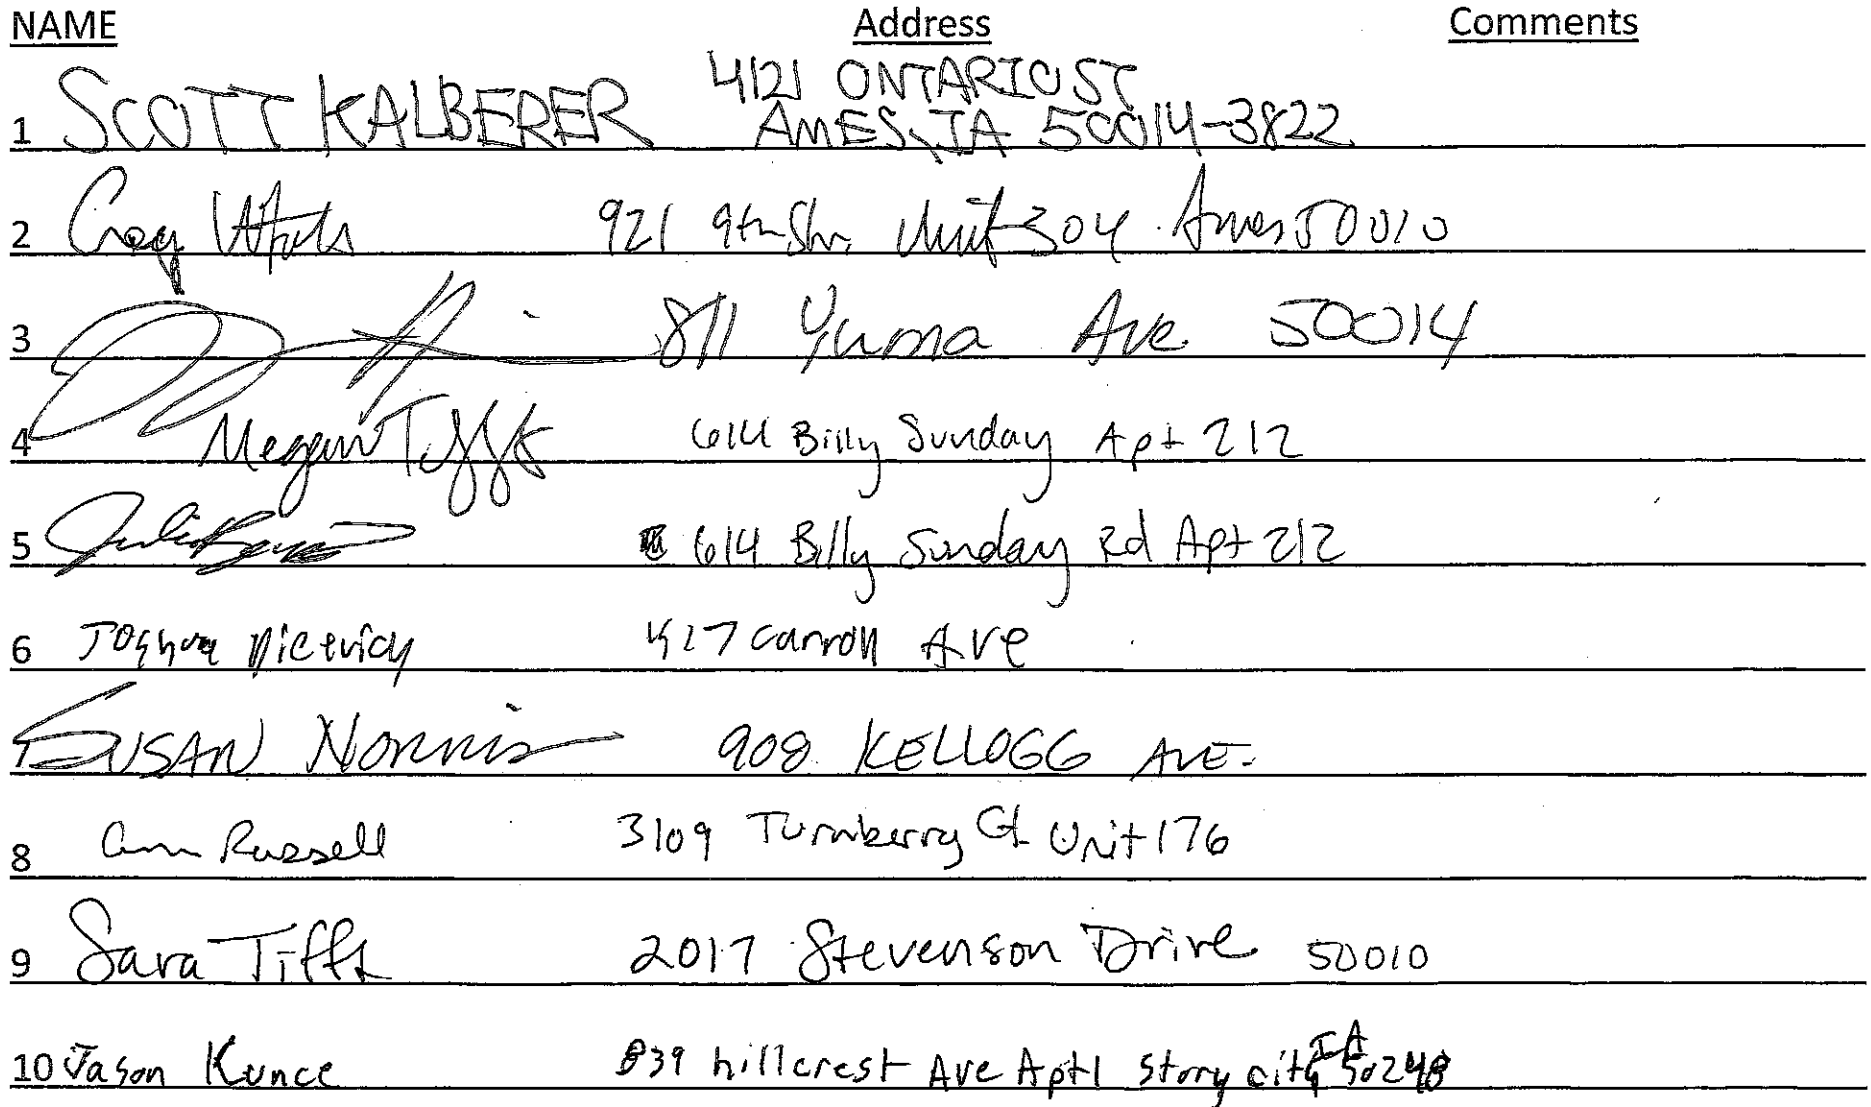 NAME Address Comments
4121 ONTARIO ST
1 SCOTT KALBERER AMES, IA 50014-3822
2 Craig 921 9th Unit 304 Ames 50010
3 811 Yuma Ave 50014
4 Megan Tifft 614 Billy Sunday Apt 212
5 Julie 614 Billy Sunday Rd Apt 212
6 Joshua Dietrich Carroll Ave
7 SUSAN NORRIS 908 KELLOGG AVE.
8 Ann Russell 3109 Turnberry Ct Unit 176
9 Sara Tifft 2017 Stevenson Drive 50010
10 Jason Kunce 839 hillcrest Ave Apt 1 Story city IA 50248